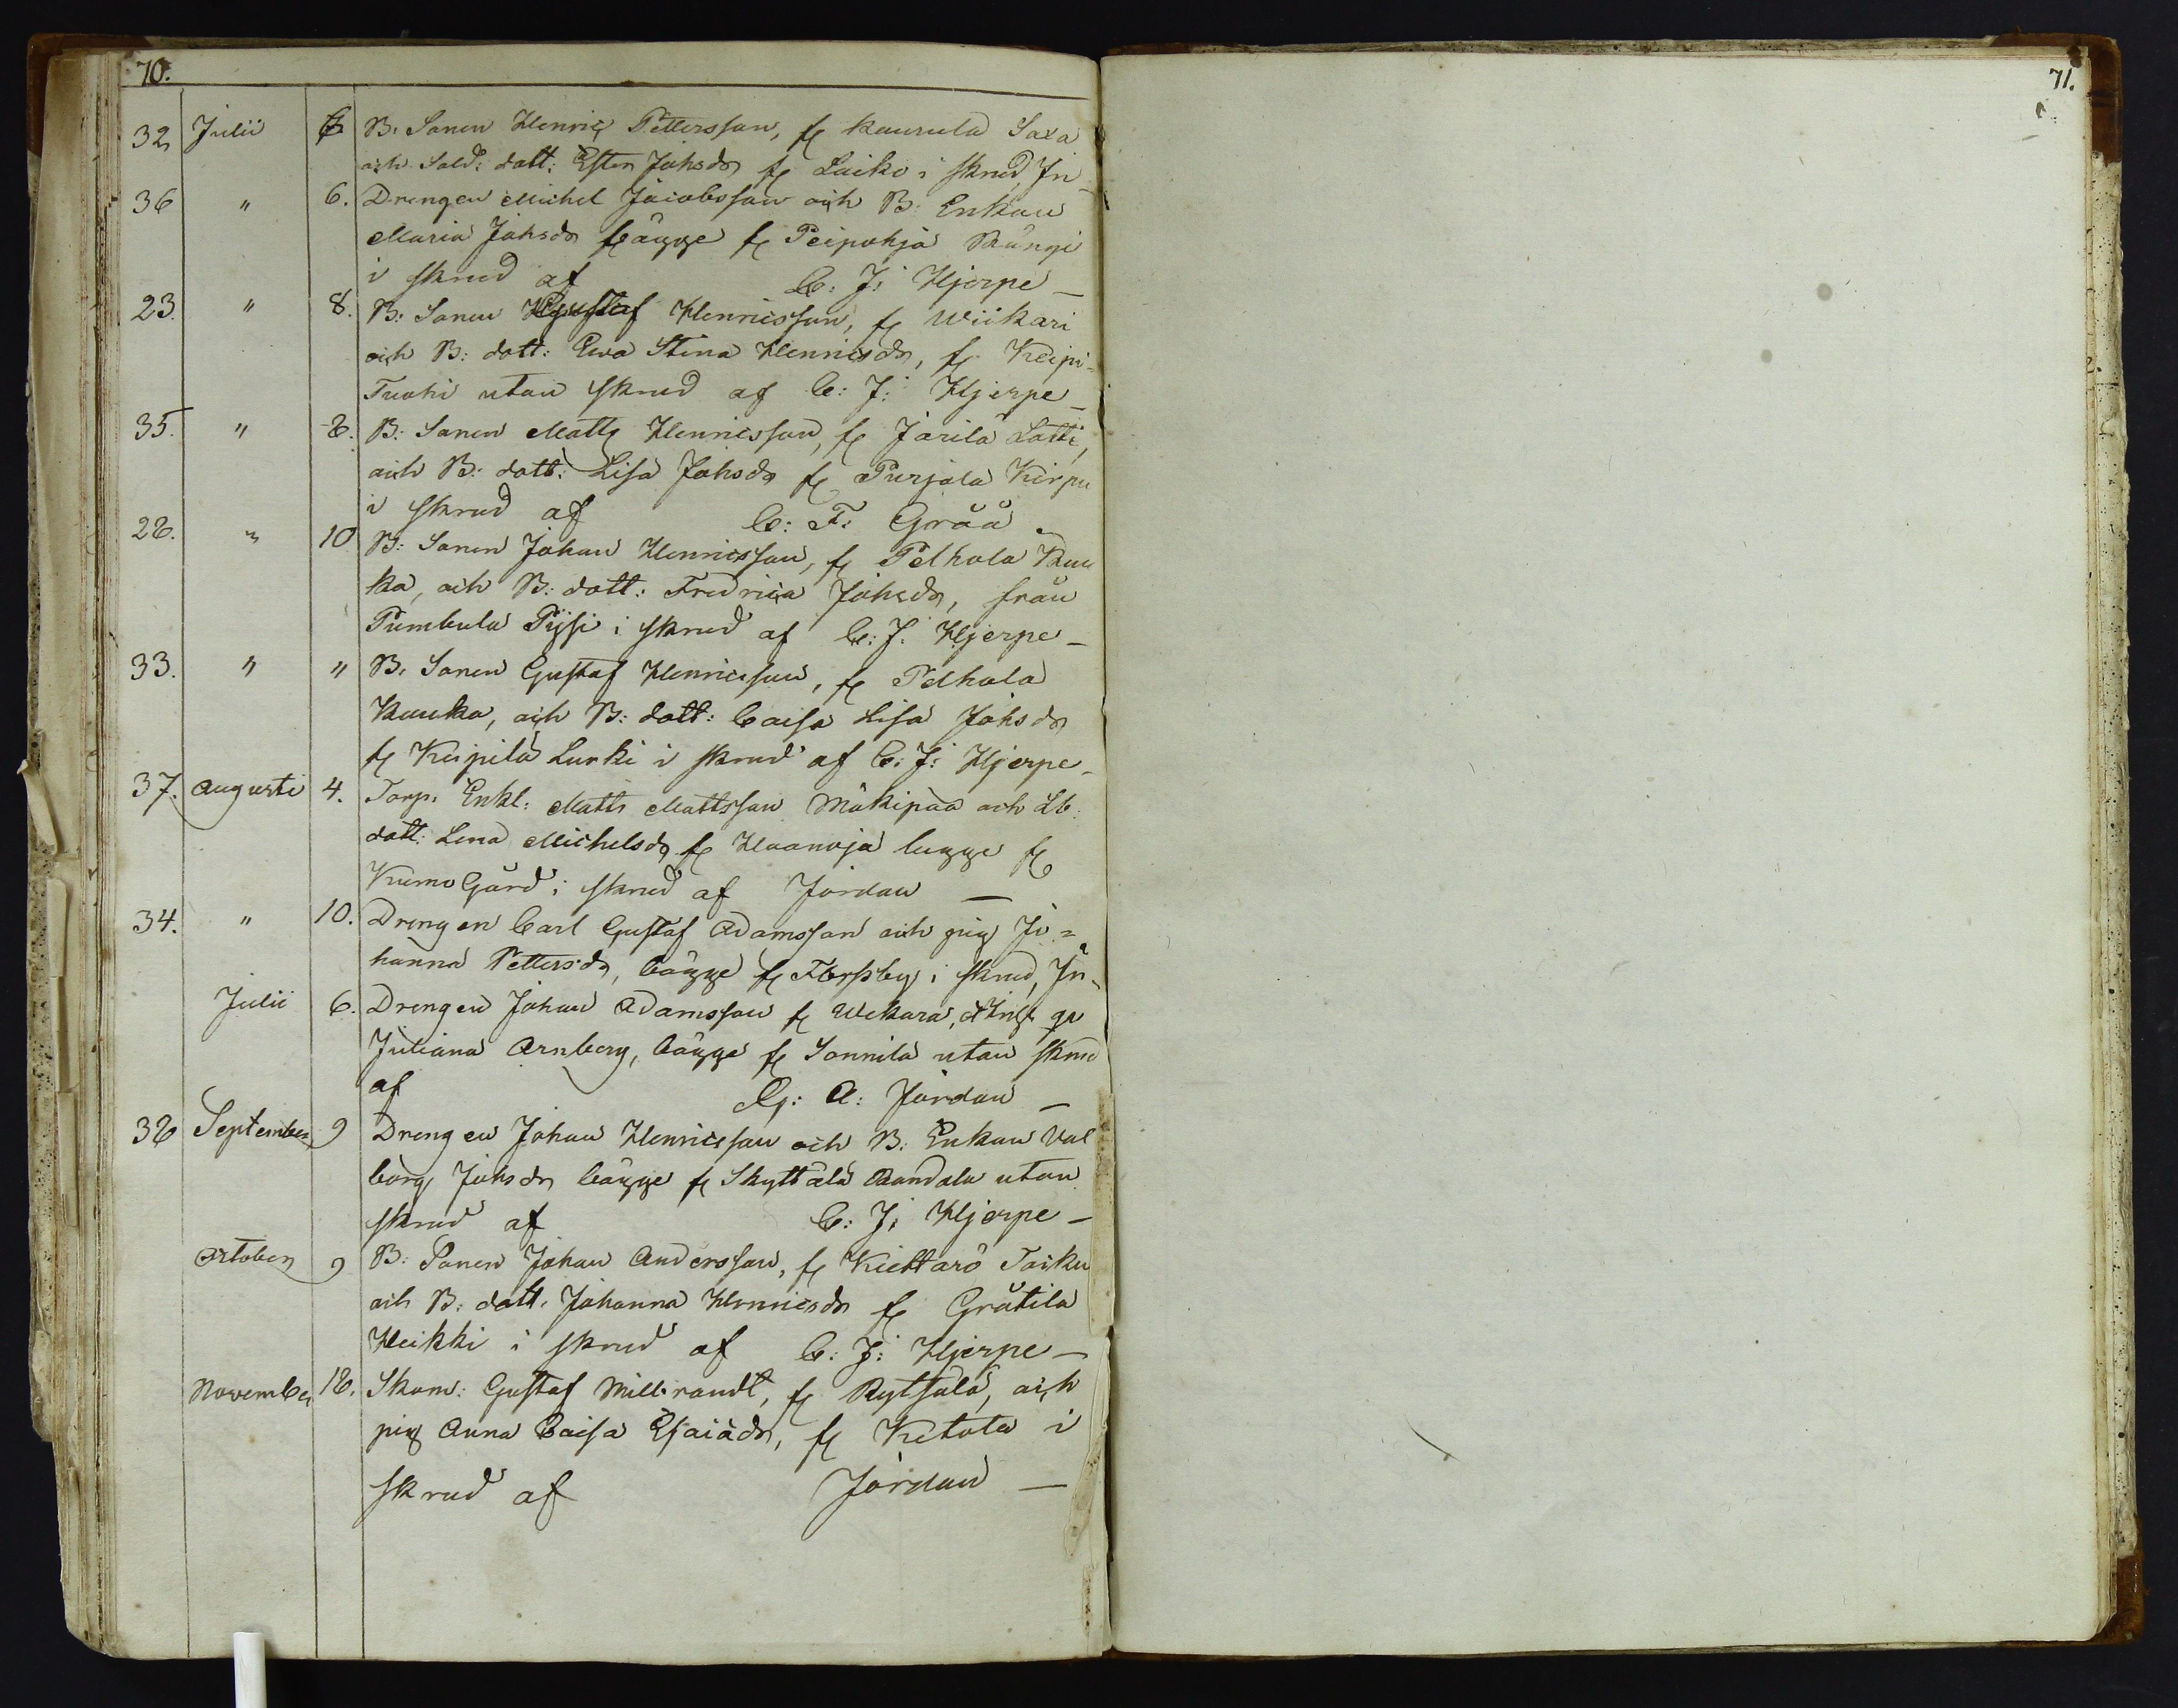 70.
32 Julii 6 B: Sonen Henric Pettersson, fr Kaurula Saxa
och Sold: dott: Ester Johsdr fr Laiko i skrud Jn
36 " 6. Drengen Michel Jacobsson och B: Enkan
Maria Johsdr bägge fr Peipohja Rängi
i skrud af C: J: Hjerpe –
23. " 8. B: Sonen Gustaf Henricsson, fr Wiikari
och B: dott: Ewa Stina Henricsdr, fr Keipi-
Tuohi utan skrud af C: J: Hjerpe –
35. " 8. B: Sonen Matts Henricsson, fr Järilä Latti,
och B: dott: Lisa Johsdr fr Purjala Kirpu
i skrud af C: F: Gråå
28. " 10 B: Sonen Johan Henricsson, fr Pelhola Kau
ka, och B: dott: Fredrica Johsdr, från
Pumbula Pijsi i skrud af C: J: Hjerpe –
33. " " B: Sonen Gustaf Henricsson, fr Pelhola
Kauka, och B: dott: Caisa Lisa Johsdr
fr Kupila Lurki i skrud af C: J: Hjerpe –
37. Augusti 4. Torp: Enkl: Matts Mattsson Mäkipää och Lb:
dott: Lena Michelsdr fr Haanoja begge fr
Kumo Gård i skrud af Jordan –
34. " 10. Drengen Carl Gustaf Adamsson och pig Jo=
hanna Pettersdr, bägge fr Forssby i skrud, Jn
Julii 6. Drengen Johan Adamsson fr Wekara,
Juliana Arnberg, bägge fr Sonnila utan skrud
af G: A: Jordan –
38 September 9 Drengen Johan Henricsson och B: Enkan Val
borg Johsdr bägge fr Skyttälä Randala utan
skrud af C: J: Hjerpe –
October 9 B: Sonen Johan Andersson, fr Kiettarö Taiku
och B: dott: Johanna Henricsdr fr Gråtila
Heikki i skrud af C: J: Hjerpe –
November 18. Skom: Gustaf Millbrandt, fr Rytsälä, och
pig Anna Caisa Esaiädr, fr Ketola i
skrud af Jordan –
71.